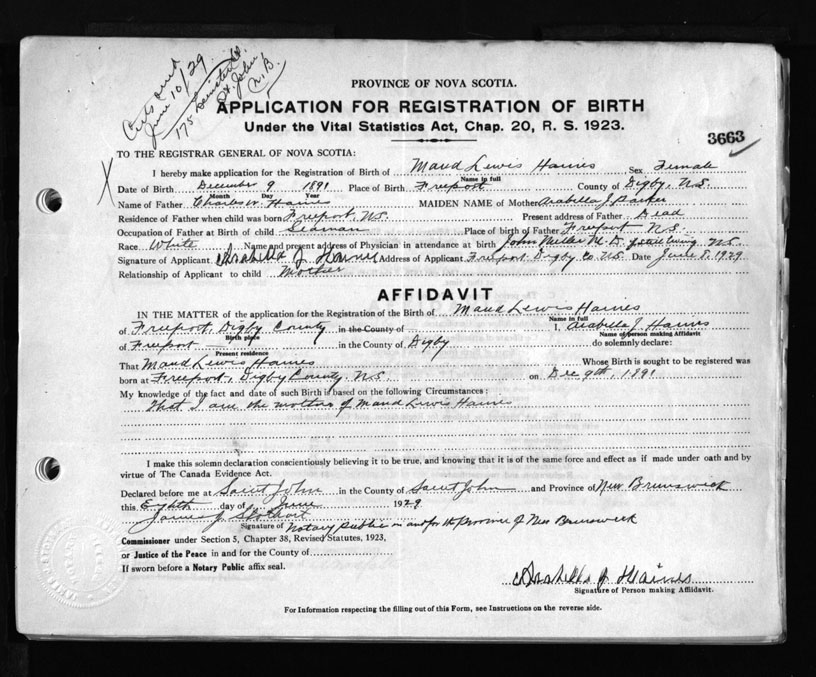 June 10/29
175
St. John
N.B.
PROVINCE OF NOVA SCOTIA.
APPLICATION FOR REGISTRATION OF BIRTH
Under the Vital Statistics Act, Chap. 20, R. S. 1923.
3663
TO THE REGISTRAR GENERAL OF NOVA SCOTIA:
I hereby make application for the Registration of Birth of Maud Lewis Haines Sex Female
Name in full
Date of Birth December 9 1891 Place of Birth Freeport County of Digby, N.S.
Month Day Year
Name of Father Charles W. Haines MAIDEN NAME of Mother Arabella J. Parker
Residence of Father when child was born Freeport, N.S. Present address of Father Dead
Occupation of Father at Birth of child Seaman Place of birth of Father Freeport N.S.
Race White Name and present address of Physician in attendance at birth John Miller M.D. N.S.
Signature of Applicant Arabella J. Haines Address of Applicant Freeport Digby Co. N.S. Date June 8, 1929
Relationship of Applicant to child Mother
AFFIDAVIT
IN THE MATTER of the application for the Registration of the Birth of Maud Lewis Haines
Name in full
of Freeport, Digby County in the County of I, Arabella J. Haines
Birth place Name of person making Affidavit
of Freeport in the County of Digby do solemnly declare:
Present residence
That Maud Lewis Haines Whose Birth is sought to be registered was
born at Freeport, Digby County N.S. on Dec 9th, 1891
My knowledge of the fact and date of such Birth is based on the following Circumstances:
That I am the mother of Maud Lewis Haines
I make this solemn declaration conscientiously believing it to be true, and knowing that it is of the same force and effect as if made under oath and by
virtue of The Canada Evidence Act.
Declared before me at Saint John in the County of Saint John and Province of New Brunswick
this Eighth day of June 1929
James J.
Signature of Notary Public in and for the Province of New Brunswick
Commissioner under Section 5, Chapter 38, Revised Statutes, 1923,
or Justice of the Peace in and for the County of
If sworn before a Notary Public affix seal.
Arabella J. Haines
Signature of Person making Affidavit.
For Information respecting the filling out of this Form, see Instructions on the reverse side.